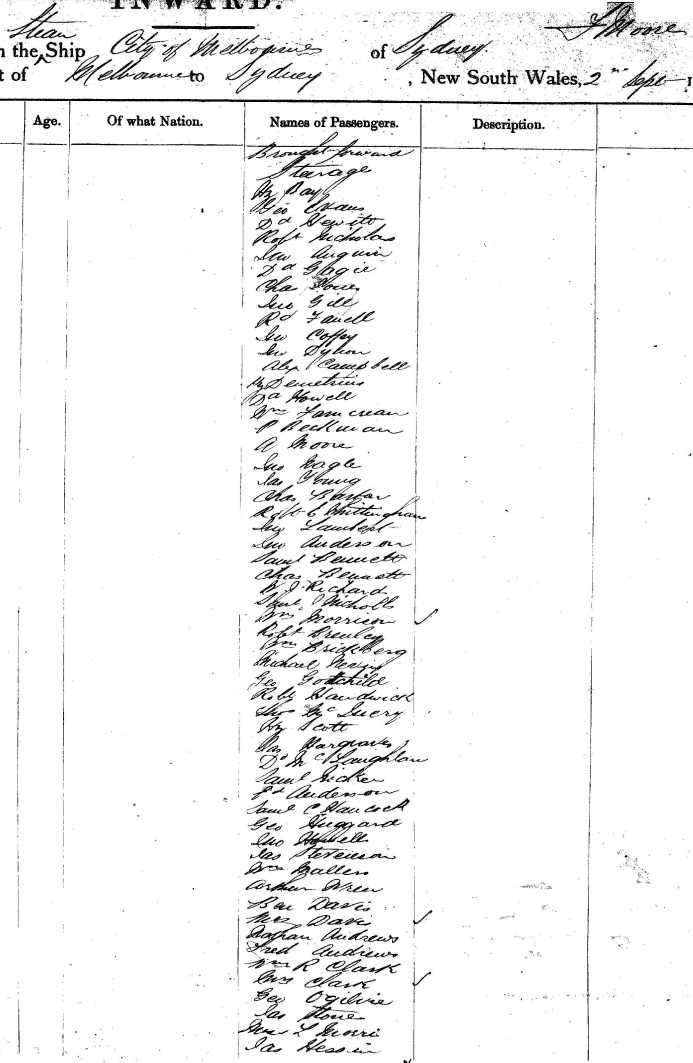 INWARD.
Steam
the Ship City of Melbourne of Sydney
t of Melbourne to Sydney, New South Wales, 2nd Sept
F Moore
Age. Of what Nation. Names of Passengers. Description.
Brought forward
Steerage
Hy Bay
Geo Evans
Dd Hewitt
Robt Nicholas
Jno
Dd Gagie
Chas Jones
Jno Gill
Rd
Jno Coffey
Jno
Alex Campbell
Hy Demetrius
Da Howell
Wm
P Beckman
A Moore
Jno Nagle
Jas Young
Chas Barfar
Robt E Whittingham
Jno Lambert
Jno Anderson
Saml Bennett
Chas Bennett
W J Richard
Saml Nicholls
Wm Morrison
Robt
Wm Brickberg
Michael
Geo Gottchild
Robt Handwick
Thos Mc
Hy Scott
Jas Hargraves
Dd McLaughlan
Saml
Fd Anderson
Saml C Hancock
Geo Huggard
Jno Howell
Jas Stevenson
Wm Mallers
Arthur Wren
Ben Davis
Mrs Davis
Nathan Andrews
Fred Andrews
Wm R Clark
Mrs Clark
Geo Ogilvie
Jas Stone
Mrs L Morri
Jas Hessin